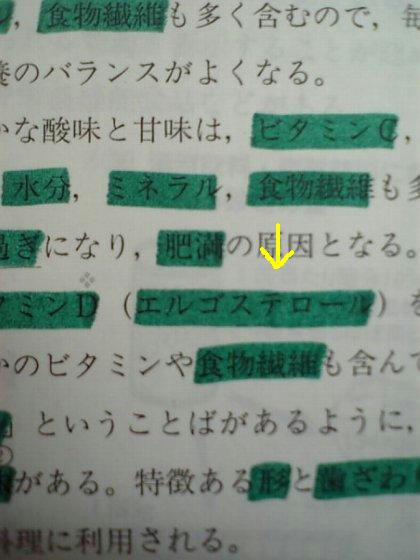 ル，食物繊維も多く含むので，毎
養のバランスがよくなる。
かな酸味と甘味は，ビタミンC，
水分，ミネラル，食物繊維も多
過ぎになり，肥満の原因となる。
タミンD（エルゴステロール）を
かのビタミンや食物繊維も含んで
ということばがあるように，
がある。特徴ある形と歯ざわり
料理に利用される。